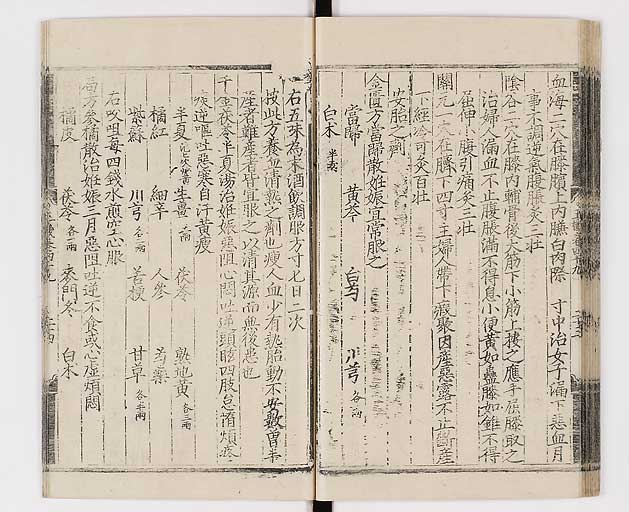 血海二穴在膝臏上內臁白肉際 寸中治女子漏下惡血月
事不調逆氣腹脹灸三壯
陰谷二穴在膝內輔骨後大筋下小筋上按之應手屈膝取之
治婦人漏血不止腹脹滿不得息小便黃如蠱膝如錐不得
屈伸小腹引痛灸三壯
關元一穴在臍下四寸主婦人帶下癥聚因產惡露不止斷產
下經冷可灸百壯
安胎之劑
金匱方當歸散姙娠宜常服之
當歸 黃芩 白芍 川芎 各一兩
白朮 半兩
右五味為末酒飲調服方寸七日二次
按此方養血清熱之劑也瘦人血少有熱胎動不安數曾半
產者難產者皆宜服之以清其源而無後患也
千金茯苓半夏湯治姙娠惡阻心悶吐逆頭眩四肢怠惰煩疼
痰逆嘔吐惡寒自汗黃瘦
半夏 生薑 茯苓 熟地黃 各三兩
橘紅 細辛 人參 芍藥
紫蘇 川芎 各一兩 苦梗 甘草 各半兩
右㕮咀每四錢水煎空心服
局方參橘散治姙娠三月惡阻吐逆不食或心虛煩悶
橘皮 茯苓 各三兩 麥門冬 白朮